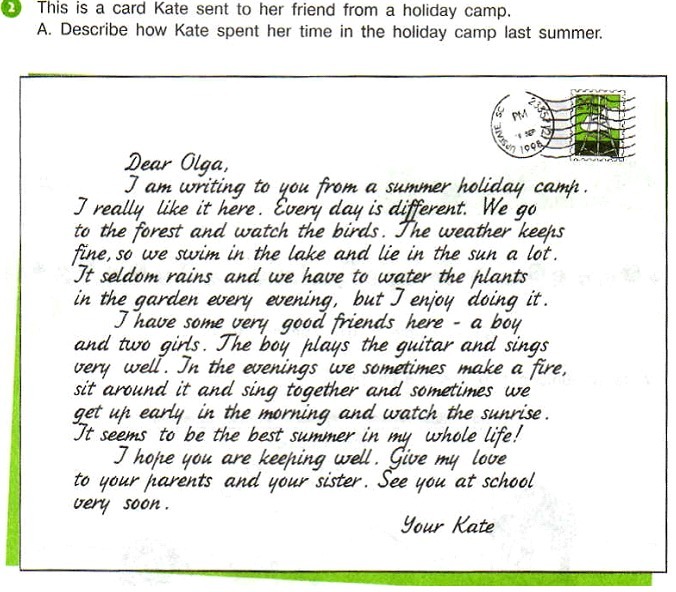 2 This is a card Kate sent to her friend from a holiday camp.
A. Describe how Kate spent her time in the holiday camp last summer.
PM
SEP
1998
Dear Olga,
I am writing to you from a summer holiday camp.
I really like it here. Every day is different. We go
to the forest and watch the birds. The weather keeps
fine, so we swim in the lake and lie in the sun a lot.
It seldom rains and we have to water the plants
in the garden every evening, but I enjoy doing it.
I have some very good friends here - a boy
and two girls. The boy plays the guitar and sings
very well. In the evenings we sometimes make a fire,
sit around it and sing together and sometimes we
get up early in the morning and watch the sunrise.
It seems to be the best summer in my whole life!
I hope you are keeping well. Give my love
to your parents and your sister. See you at school
very soon.
Your Kate